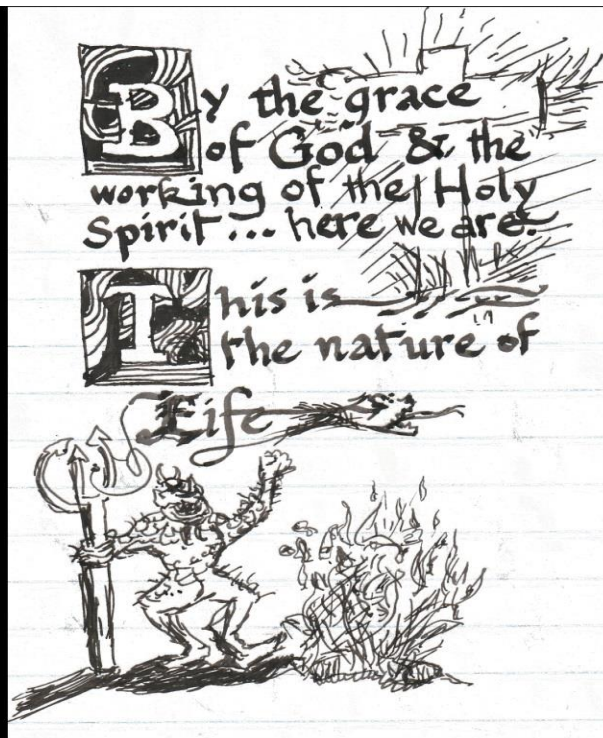 By the grace
of God & the
working of the Holy
Spirit... here we are.
This is
the nature of
Life